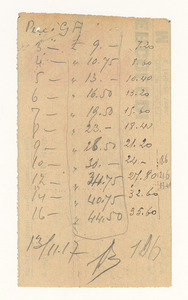 3 – " 9.– 7.20
4 – " 10.75 8.60
5 – " 13.– 10.40
6 – " 16.50 13.20
7 – " 19.50 15.60
8 – " 23.– 18.40
9 – " 26.50 21.20
10 – " 30.– 24.–
12 – " 34.75 27.80
14 – " 40.75 32.60
16 – " 44.50 35.60
13/11.17 B